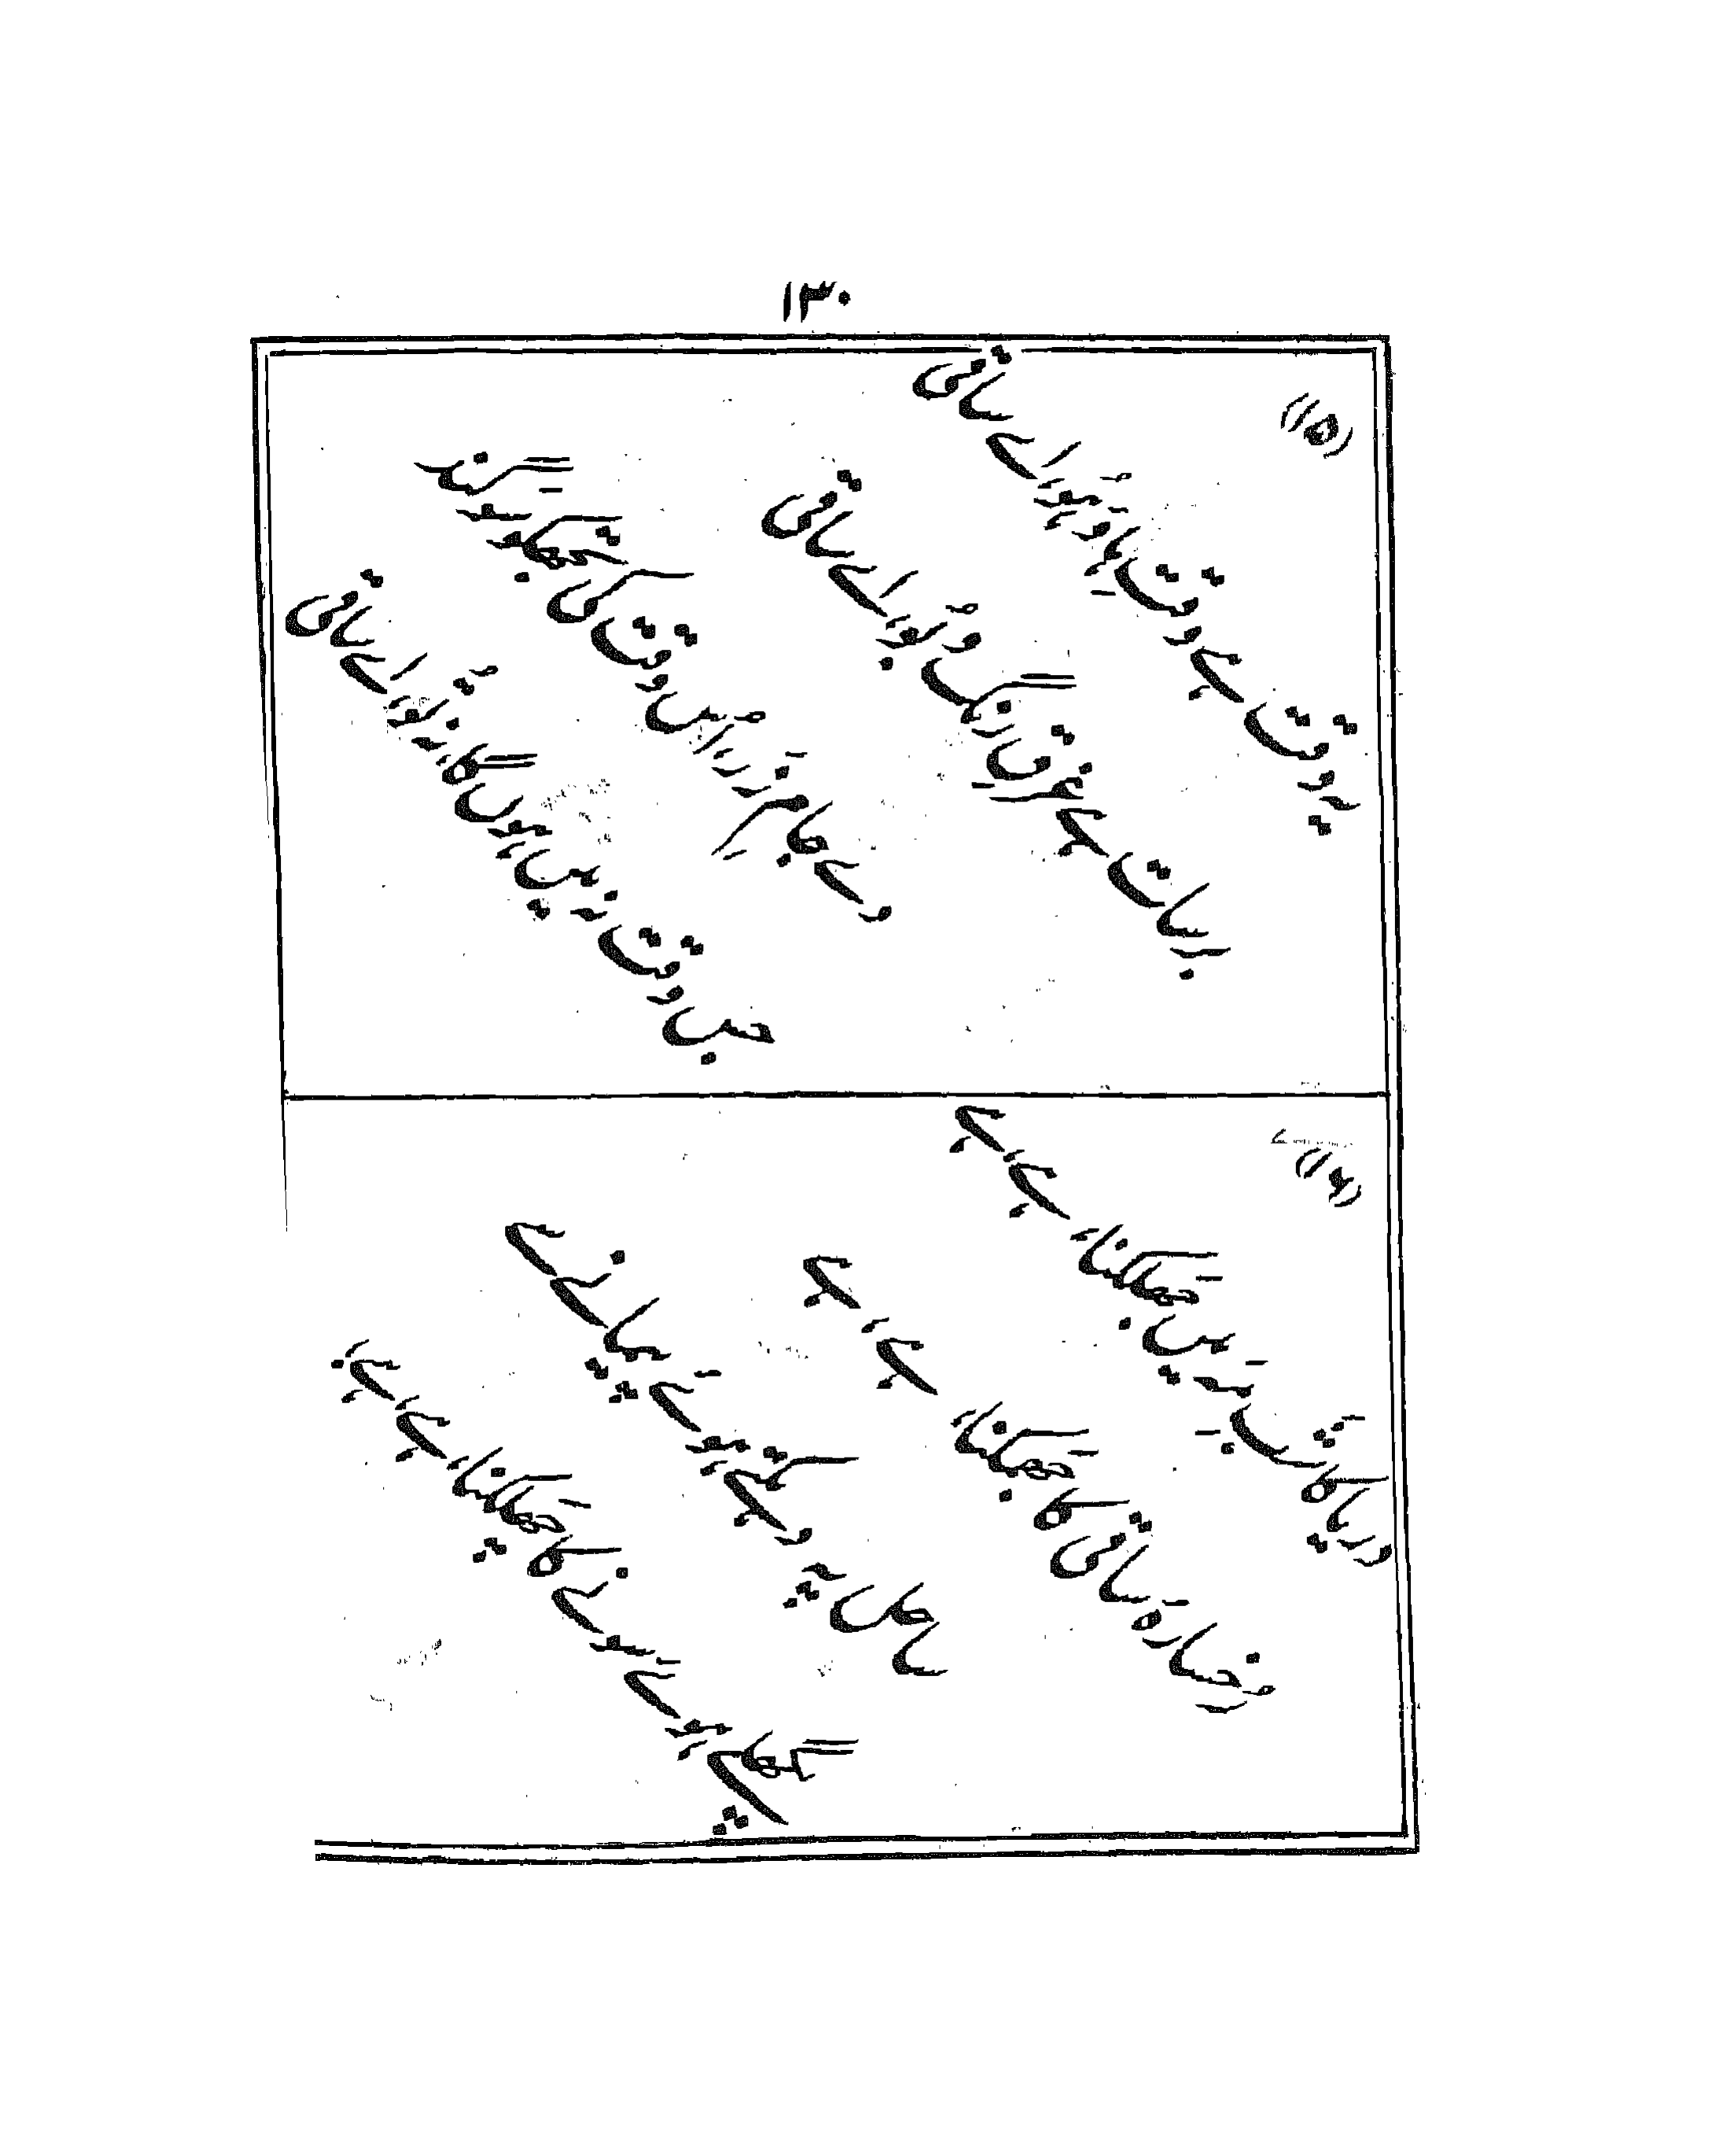 ۱۳۰
(۱۵)
یہ وقت ہے وقتِ ہا وہُو اے ساقی
برسات ہے غرقِ رنگ و بُو اے ساقی
دے جامِ زر، اُس وقت کی تجھکو سوگند
جس وقت نہ میں ہوں گا نہ تُو اے ساقی
(۱۶)
دریا کا شبِ مَہ میں جھلکنا، ہے ہے
رُخسارۂ ساقی کا جھمکنا، ہے ہے
ساحل پہ دمکتے ہوئے پیمانے سے
پگھلے ہوئے سونے کا چھلکنا، ہے ہے